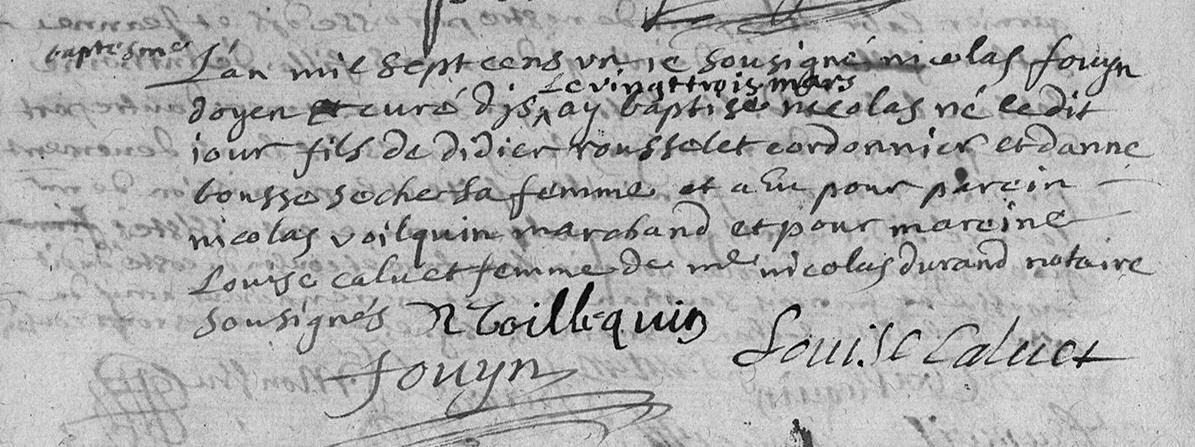 baptesme
L'an mil sept cens un ie sousigné nicolas fouyn
le vingt trois mars
doyen et curé d'is,ay baptisé nicolas né ledit
iour fils de didier rousselet cordonnier et danne
boussesocher sa femme et a Eu pour parein
nicolas voilquin marchand et pour mareine
Louise caluet femme de me nicolas durand notaire
sousignés N Voillequin
fouyn Louise Caluet